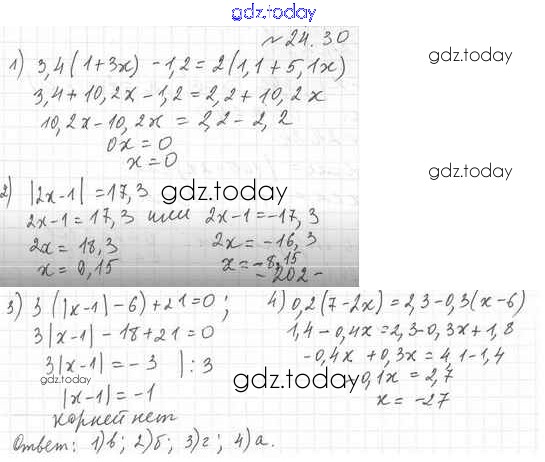 gdz.today
№ 24.30
gdz.today
1) 3,4(1+3x) -1,2 = 2(1,1+5,1x)
3,4+10,2x-1,2=2,2+10,2x
10,2x-10,2x = 2,2-2,2
0x = 0
x = 0
gdz.today
2) |2x-1| = 17,3
gdz.today
2x-1 = 17,3 или 2x-1 = -17,3
2x = 18,3 2x = -16,3
x = 9,15 x = -8,15
- 202 -
3) 3(|x-1|-6)+21=0;
3|x-1| -18+21=0
3|x-1| = -3 | :3
gdz.today
|x-1| = -1
корней нет
4) 0,2(7-2x)=2,3-0,3(x-6)
1,4-0,4x=2,3-0,3x+1,8
-0,4x+0,3x=4,1-1,4
gdz.today
-0,1x = 2,7
x = -27
Ответ: 1)в; 2)б; 3)г; 4)а.